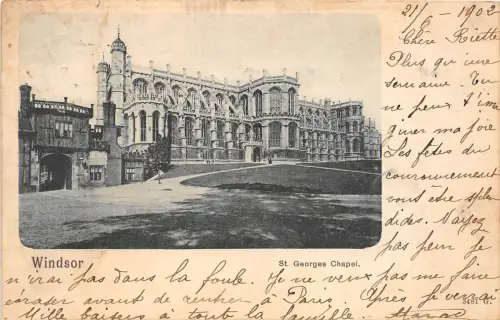 21/6 - 1902
Chère Riette
Plus qu'une
semaine. Tu
ne peux t'ima
giner ma joie
Les fêtes du
couronnement
vont être splen
dides. N'ayez
pas peur je
Windsor
St. Georges Chapel.
n'irai pas dans la foule. Je ne veux pas me faire
écraser avant de rentrer à Paris. Après je verrai
Mille baisers à toute la famille.
3451 G.